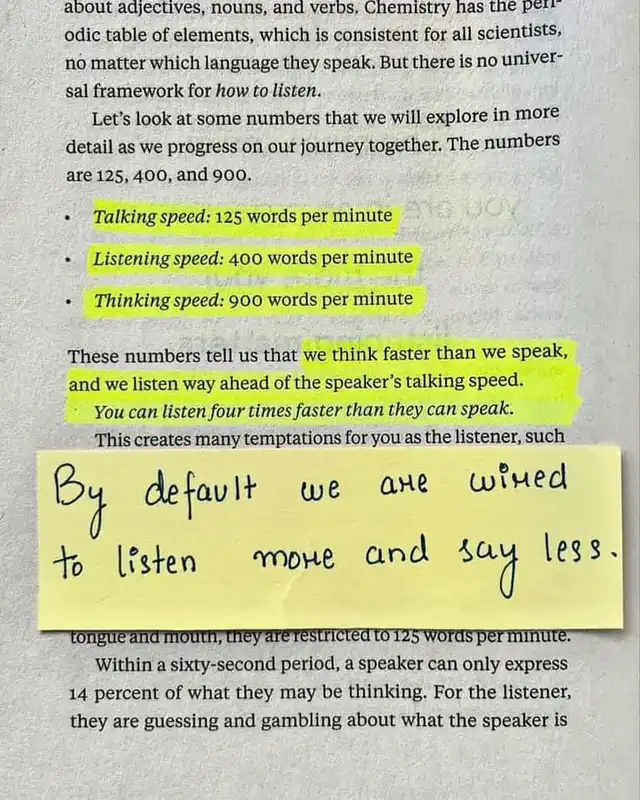 about adjectives, nouns, and verbs. Chemistry has the peri-
odic table of elements, which is consistent for all scientists,
no matter which language they speak. But there is no univer-
sal framework for how to listen.
Let's look at some numbers that we will explore in more
detail as we progress on our journey together. The numbers
are 125, 400, and 900.
• Talking speed: 125 words per minute
• Listening speed: 400 words per minute
• Thinking speed: 900 words per minute
These numbers tell us that we think faster than we speak,
and we listen way ahead of the speaker's talking speed.
You can listen four times faster than they can speak.
This creates many temptations for you as the listener, such
By default we are wired
to listen more and say less.
tongue and mouth, they are restricted to 125 words per minute.
Within a sixty-second period, a speaker can only express
14 percent of what they may be thinking. For the listener,
they are guessing and gambling about what the speaker is